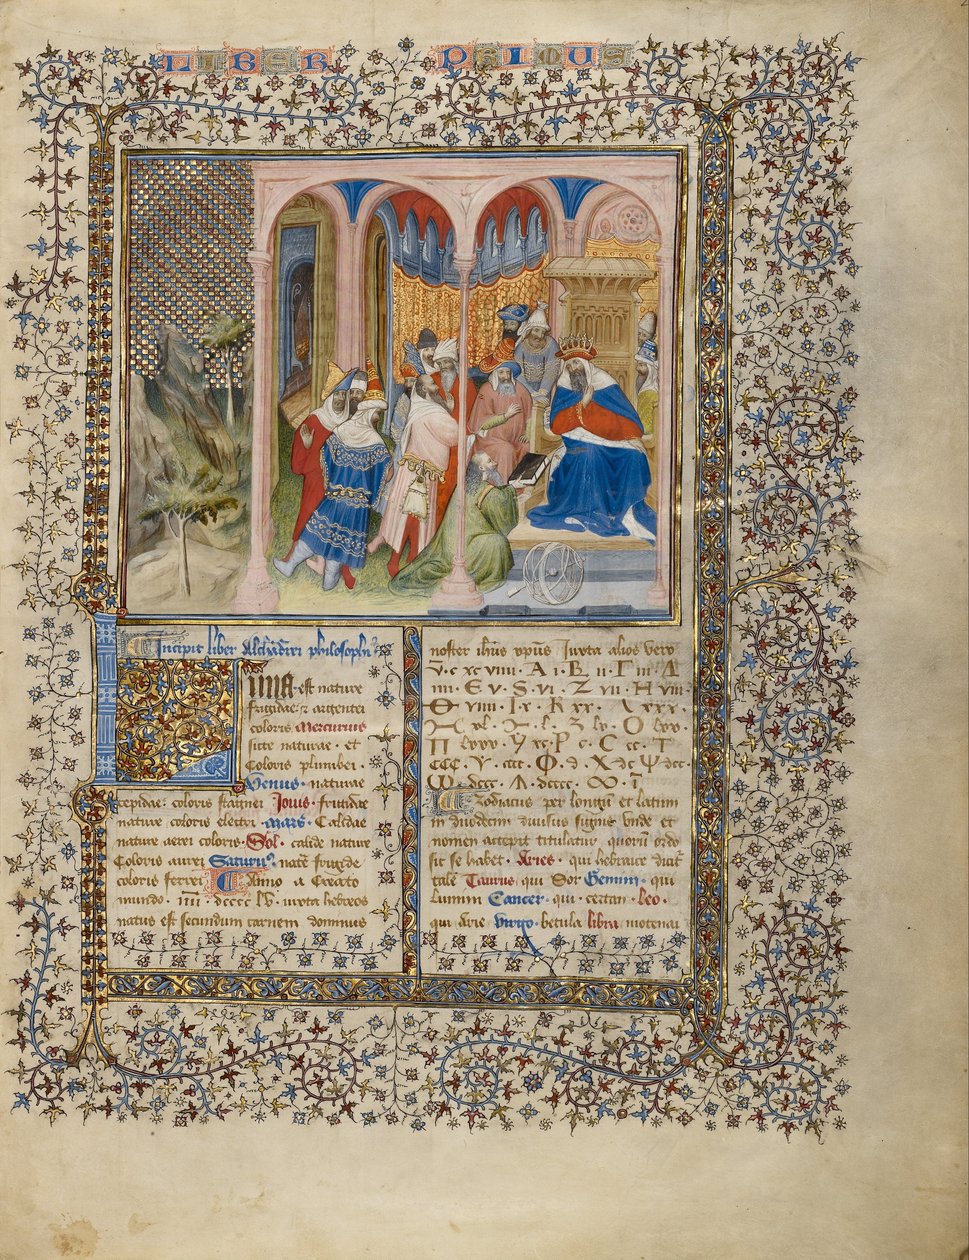 LIBER PRIMUS
Incipit liber Alchadiri philosophi
luna est nature
frigidae et argentei
coloris Mercurius
siccae naturae · et
Coloris plumbei
Venus · naturae
tepidae · coloris stagnei Jovis · frigidae
nature coloris electri · Mars · Calidae
nature aerei coloris · Sol · calide nature
Coloris aurei Saturnus nature frigide
coloris ferrei Anno a Creato
mundo · IIII · dcccc LV · iuxta hebreos
natus est secundum carnem dominus
noster ihus xpus Iuxta alios vero
v · c · xc viiii · A · i · B · ii · Γ · iii · Δ
iiii · E · v · S · vi · Z · vii · H · viii
Θ · viiii · I · x · K · xx · xxx ·
xl · l · Ξ · lx · O · lxx ·
Π · lxxx · Ϥ · xc · P · c · C · cc · T
ccc · Y · cccc · Φ · d · X · dc · Ψ · dcc
Ω · dccc · dcccc · ∞ · i
Zodiacus per longum et latum
in duodecim divisus signis unde et
nomen accepit titulatur quorum ordo
sic se habet · Aries · qui hebraice dicit
tale Taurus qui Sor Gemini · qui
Lumim Cancer · qui · certan · Leo ·
qui Arie Virgo · betula libra mozenai